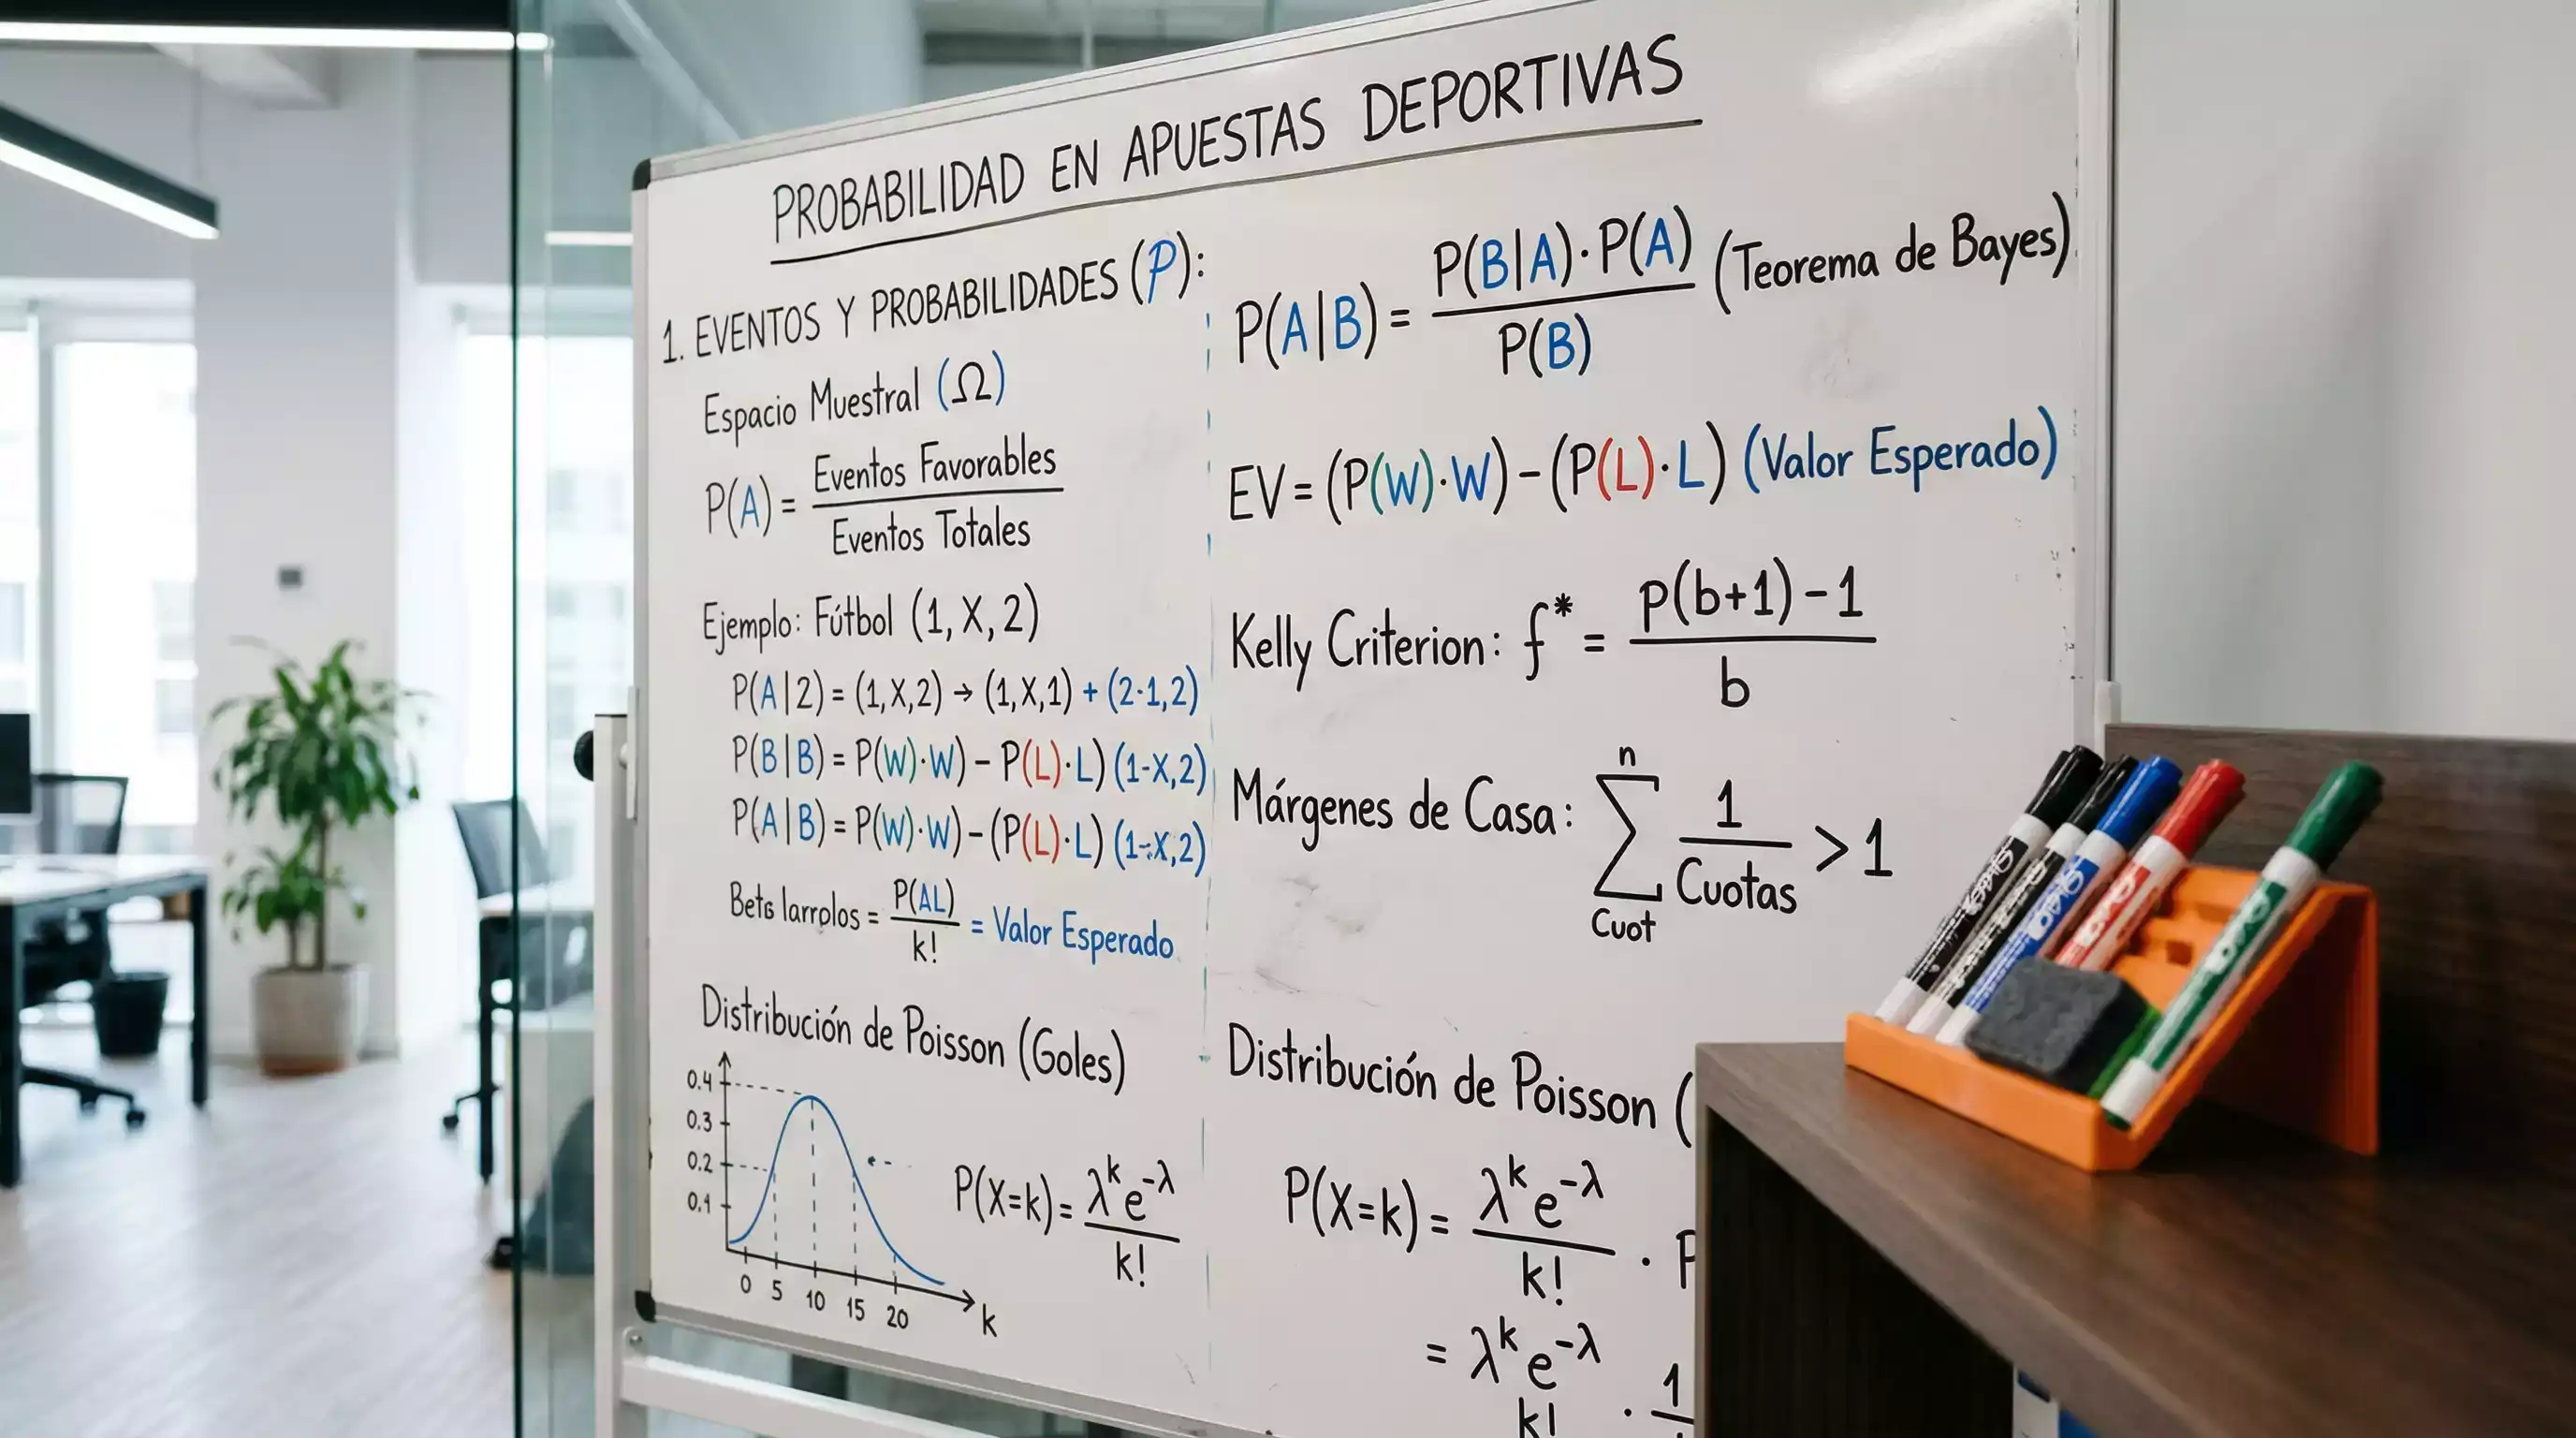 PROBABILIDAD EN APUESTAS DEPORTIVAS
1. EVENTOS Y PROBABILIDADES (P):
Espacio Muestral (Ω)
P(A) = Eventos Favorables
Eventos Totales
Ejemplo: Fútbol (1, X, 2)
P(A|2) = (1,X,2) → (1,X,1) + (2·1,2)
P(B|B) = P(W)·W) - P(L)·L) (1-X,2)
P(A|B) = P(W)·W) - (P(L)·L) (1÷X,2)
Bets larrolos = P(AL) / k! = Valor Esperado
Distribución de Poisson (Goles)
0.4
0.3
0.2
0.1
0 5 10 15 20 k
P(X=k) = λ^k e^-λ
k!
P(A|B) = P(B|A)·P(A) (Teorema de Bayes)
P(B)
EV = (P(W)·W) - (P(L)·L) (Valor Esperado)
Kelly Criterion: f* = p(b+1)-1
b
n
Márgenes de Casa: ∑ 1 > 1
Cuotas
Cuot
Distribución de Poisson (
P(X=k) = λ^k e^-λ
k! · P
= λ^k e^-λ
k! · 1